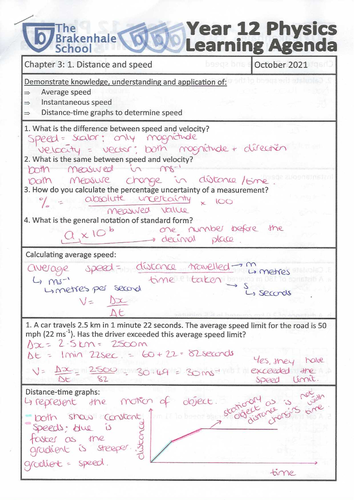 The
Brakenhale
School
Year 12 Physics
Learning Agenda
Chapter 3: 1. Distance and speed
October 2021
Demonstrate knowledge, understanding and application of:
⇒ Average speed
⇒ Instantaneous speed
⇒ Distance-time graphs to determine speed
1. What is the difference between speed and velocity?
Speed = scalar; only magnitude
velocity = vector; both magnitude + direction
2. What is the same between speed and velocity?
both measured in ms⁻¹
both measure change in distance/time.
3. How do you calculate the percentage uncertainty of a measurement?
% = absolute uncertainty × 100
measured value
4. What is the general notation of standard form?
a × 10ᵇ
one number before the
decimal place
Calculating average speed:
average speed = distance travelled → m
↳ ms⁻¹
↳ metres
↳ metres per second
time taken → s
↳ seconds
V = Δx
Δt
1. A car travels 2.5 km in 1 minute 22 seconds. The average speed limit for the road is 50
mph (22 ms⁻¹). Has the driver exceeded this average speed limit?
Δx = 2.5km = 2500m
Δt = 1min 22sec = 60 + 22 = 82 seconds
V = Δx = 2500 = 30.49 = 30ms⁻¹
Δt 82
Yes, they have
exceeded the
speed limit.
Distance-time graphs:
↳ represent the motion of object.
both show constant
speeds; blue is
faster as the
gradient is steeper.
gradient = speed.
distance
stationary
object as
distance is not
changing with
time
time